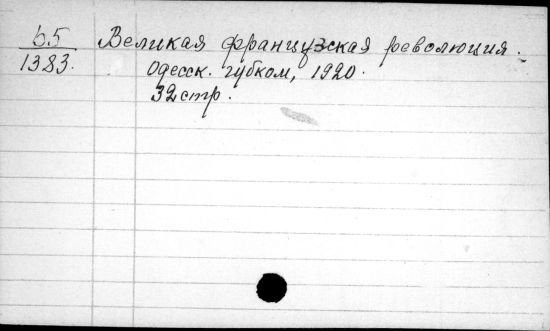 65 Великая французская революция.
1383. Одесск. губком, 1920.
32 стр.